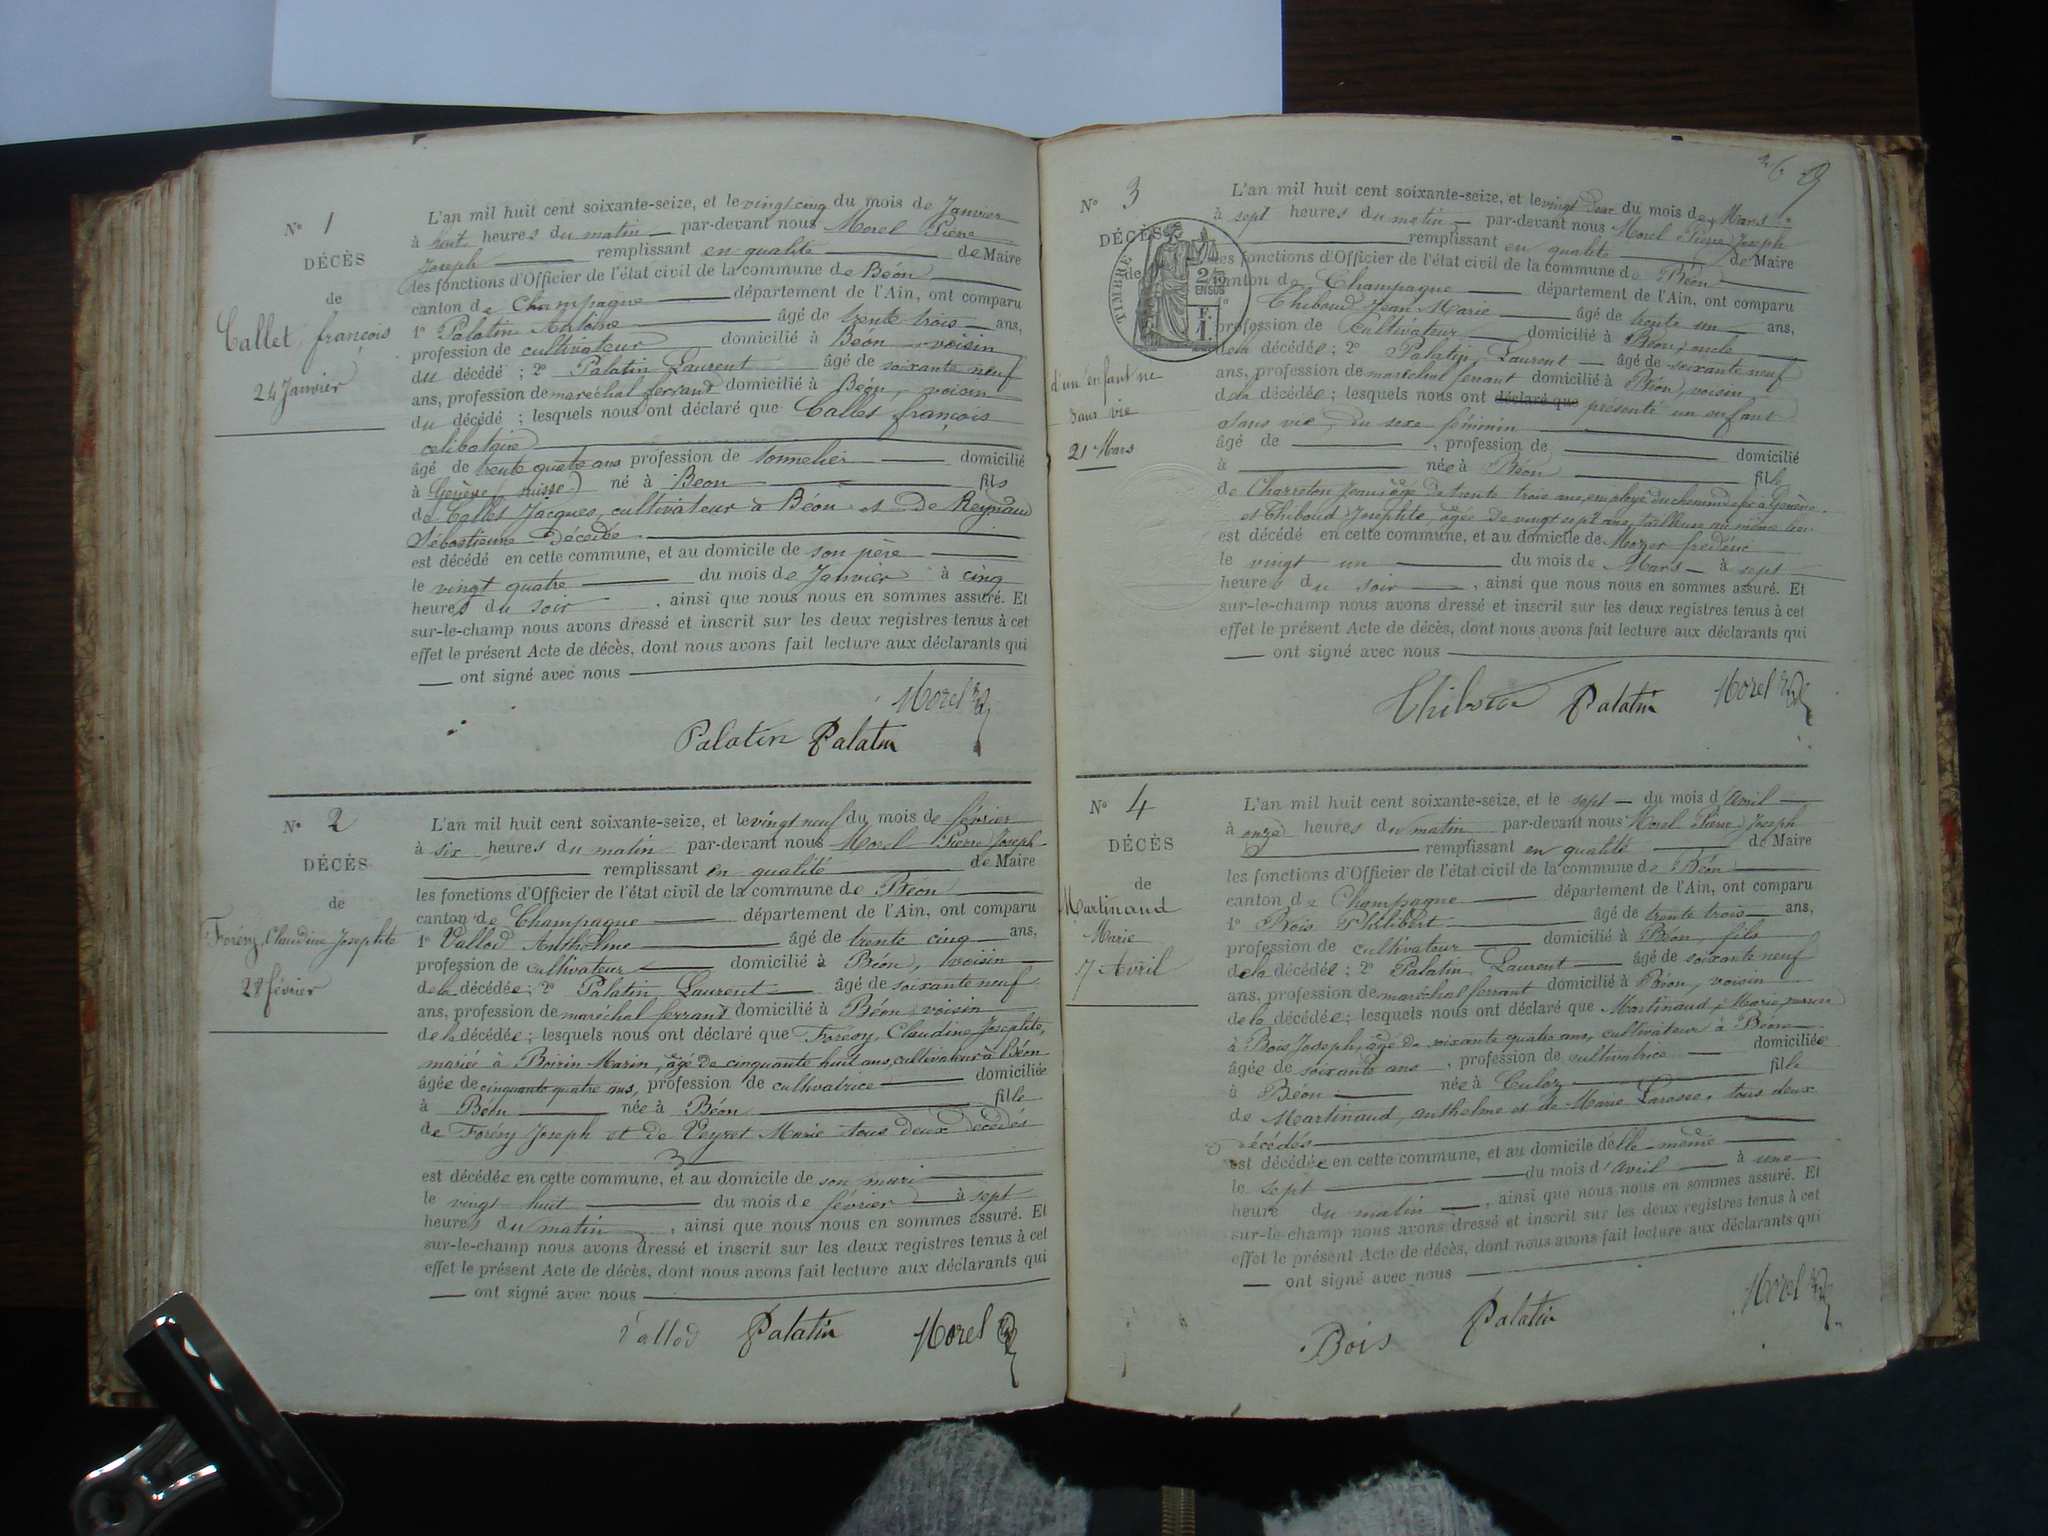 N° 1
DÉCÈS
de
Callet, françois
24 Janvier
L'an mil huit cent soixante-seize, et le vingt cinq du mois de Janvier
à huit heures du matin par-devant nous Morel Pierre
Joseph remplissant en qualité de Maire
les fonctions d'Officier de l'état civil de la commune de Béon
canton de Champagne département de l'Ain, ont comparu
1° Palatin Antoine âgé de trente trois ans,
profession de cultivateur domicilié à Béon voisin
du décédé ; 2° Palatin Laurent âgé de soixante neuf
ans, profession de maréchal ferrand domicilié à Béon, voisin
du décédé ; lesquels nous ont déclaré que Callet françois
celibataire
âgé de trente quatre ans profession de tonnelier domicilié
à Genève (suisse) né à Béon fils
de Callet Jacques, cultivateur à Béon et de Reynaud
Sébastienne décédée
est décédé en cette commune, et au domicile de son père
le vingt quatre du mois de Janvier à cinq
heures du soir , ainsi que nous nous en sommes assuré. Et
sur-le-champ nous avons dressé et inscrit sur les deux registres tenus à cet
effet le présent Acte de décès, dont nous avons fait lecture aux déclarants qui
ont signé avec nous
Morel
Palatin Palatin
N° 2
DÉCÈS
de
Foréry, Claudine Josephte
28 février
L'an mil huit cent soixante-seize, et le vingt neuf du mois de février
à six heures du matin par-devant nous Morel Pierre Joseph
remplissant en qualité de Maire
les fonctions d'Officier de l'état civil de la commune de Béon
canton de Champagne département de l'Ain, ont comparu
1° Vallod Anthelme âgé de trente cinq ans,
profession de cultivateur domicilié à Béon, voisin
de la décédée ; 2° Palatin Laurent âgé de soixante neuf
ans, profession de maréchal ferrand domicilié à Béon voisin
de la décédée ; lesquels nous ont déclaré que Claudine Josephte,
mariée à Marin, âgé de cinquante huit ans, cultivateur à Béon
âgée de cinquante quatre ans, profession de cultivatrice domiciliée
à Béon née à Béon fille
de Foréry Joseph et de Veyret Marie tous deux décédés
est décédée en cette commune, et au domicile de son mari
le vingt huit du mois de février à sept
heures du matin , ainsi que nous nous en sommes assuré. Et
sur-le-champ nous avons dressé et inscrit sur les deux registres tenus à cet
effet le présent Acte de décès, dont nous avons fait lecture aux déclarants qui
ont signé avec nous
Vallod Palatin Morel
N° 3
DÉCÈS
de
TIMBRE
EN SUS
F.
1.
d'un enfant né
sans vie
21 Mars
L'an mil huit cent soixante-seize, et le vingt deux du mois de Mars
à sept heures du matin par-devant nous Morel Pierre Joseph
remplissant en qualité de Maire
les fonctions d'Officier de l'état civil de la commune de Béon
canton de Champagne département de l'Ain, ont comparu
1° Thiboud Jean Marie âgé de trente un ans,
profession de Cultivateur domicilié à Béon, oncle
de la décédée ; 2° Palatin Laurent âgé de soixante neuf
ans, profession de maréchal ferrant domicilié à Béon, voisin
de la décédée ; lesquels nous ont déclaré que présenté un enfant
sans vie, du sexe féminin
âgé de , profession de domicilié
à née à Béon fille
de Charreton Jean âgé de trente trois ans, employé du chemin de fer à Genève
et Thiboud Josephte, âgée de vingt sept ans, tailleuse au même lieu
est décédé en cette commune, et au domicile de frédéric
le vingt un du mois de Mars à sept
heures du soir , ainsi que nous nous en sommes assuré. Et
sur-le-champ nous avons dressé et inscrit sur les deux registres tenus à cet
effet le présent Acte de décès, dont nous avons fait lecture aux déclarants qui
ont signé avec nous
Thiboud Palatin Morel
N° 4
DÉCÈS
de
Martinaud
Marie
7 Avril
L'an mil huit cent soixante-seize, et le sept du mois d'Avril
à onze heures du matin par-devant nous Morel Pierre Joseph
remplissant en qualité de Maire
les fonctions d'Officier de l'état civil de la commune de Béon
canton de Champagne département de l'Ain, ont comparu
1° Bois Philibert âgé de trente trois ans,
profession de cultivateur domicilié à Béon, fils
de la décédée ; 2° Palatin Laurent âgé de soixante neuf
ans, profession de maréchal ferrant domicilié à Béon, voisin
de la décédée ; lesquels nous ont déclaré que Martinaud, Marie,
à Bois Joseph, âgé de soixante quatre ans, cultivateur à Béon
âgée de soixante ans , profession de cultivatrice domiciliée
à Béon née à Culoz fille
de Martinaud, Anthelme et de Marie tous deux
décédés
est décédée en cette commune, et au domicile d'elle même
le sept du mois d'Avril à une
heure du matin , ainsi que nous nous en sommes assuré. Et
sur-le-champ nous avons dressé et inscrit sur les deux registres tenus à cet
effet le présent Acte de décès, dont nous avons fait lecture aux déclarants qui
ont signé avec nous
Bois Palatin Morel